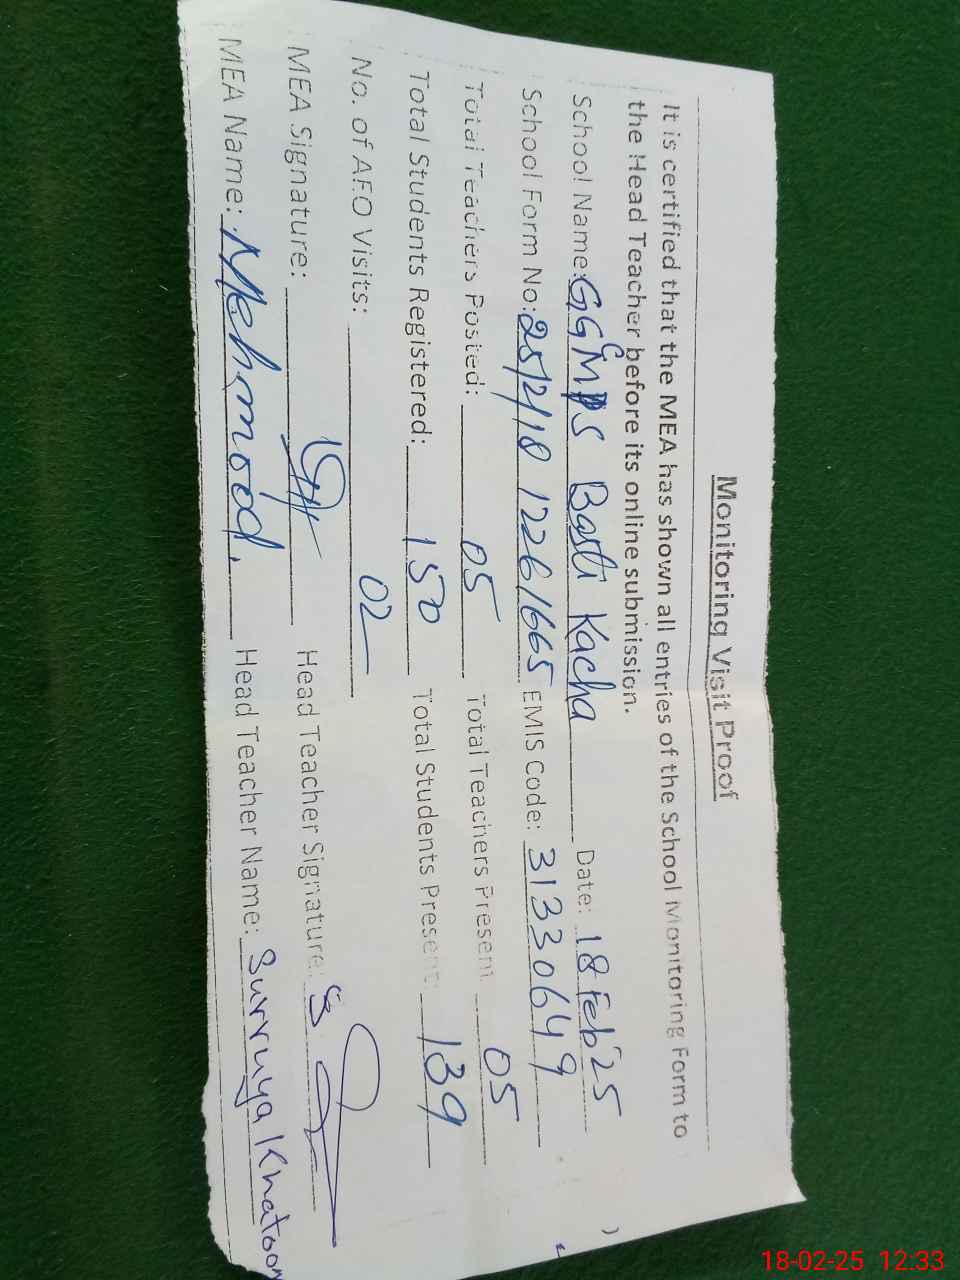 Monitoring Visit Proof
It is certified that the MEA has shown all entries of the School Monitoring Form to
the Head Teacher before its online submission.
School Name: GGCMPS Basti Kacha Date: 18 Feb'25
School Form No: 25/2/18 12261665 EMIS Code: 31330649
Total Teachers Posted: 05 Total Teachers Present 05
Total Students Registered: 150 Total Students Present: 139
No. of AEO Visits: 02
MEA Signature: Head Teacher Signature:
MEA Name: Mehmood. Head Teacher Name: Surruya Khatoon
18-02-25 12:33